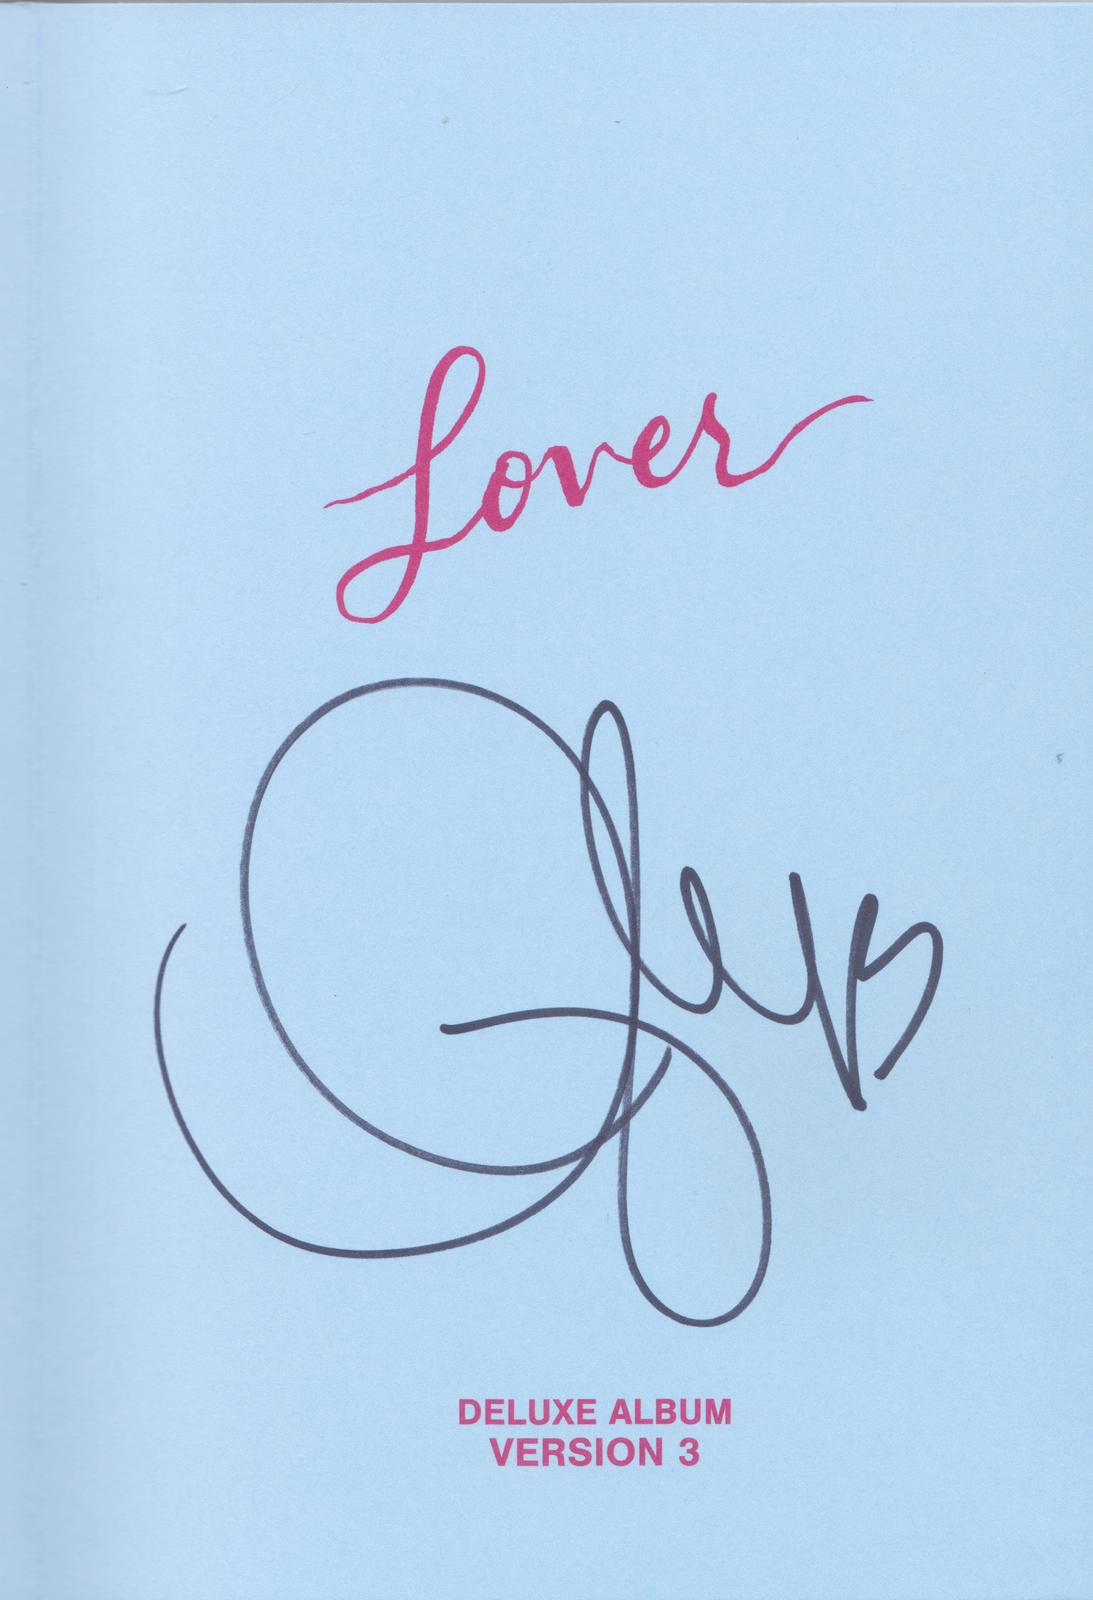 Lover
DELUXE ALBUM
VERSION 3